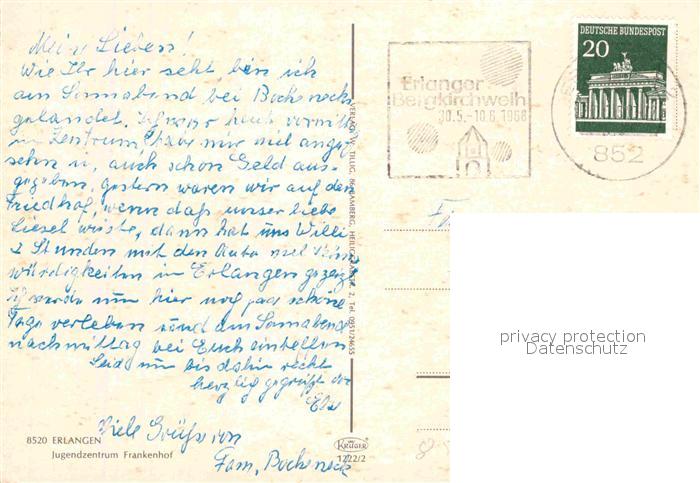 Meine Lieben!
Wie Ihr hier seht, bin ich
am Sonnabend bei Bocksnecks
gelandet. Ich war heut vormitt.
im Zentrum, habe mir viel ange-
sehn u. auch schon Geld aus-
gegeben, gestern waren wir auf den
Friedhof, wenn daß unser liebe
Liesel wüste, dann hat uns Willi
2 Stunden mit den Auto viel
würdigkeiten in Erlangen gezeigt
Ich werde nun hier noch paar schöne
Tage verleben und am Sonnabend
nachmittag bei Euch eintreffen
Seid nun bis dahin recht
herzlig gegrüßt von
Else
Viele Grüße von
Fam. Bocksneck
8520 ERLANGEN
Jugendzentrum Frankenhof
VERLAG W. TILLIG, 86 BAMBERG, 2, Tel. 0951/24655
KRÜGER
1222/2
Erlanger
Bergkirchweih
30.5.-10.6.1968
DEUTSCHE BUNDESPOST
20
852
privacy protection
Datenschutz